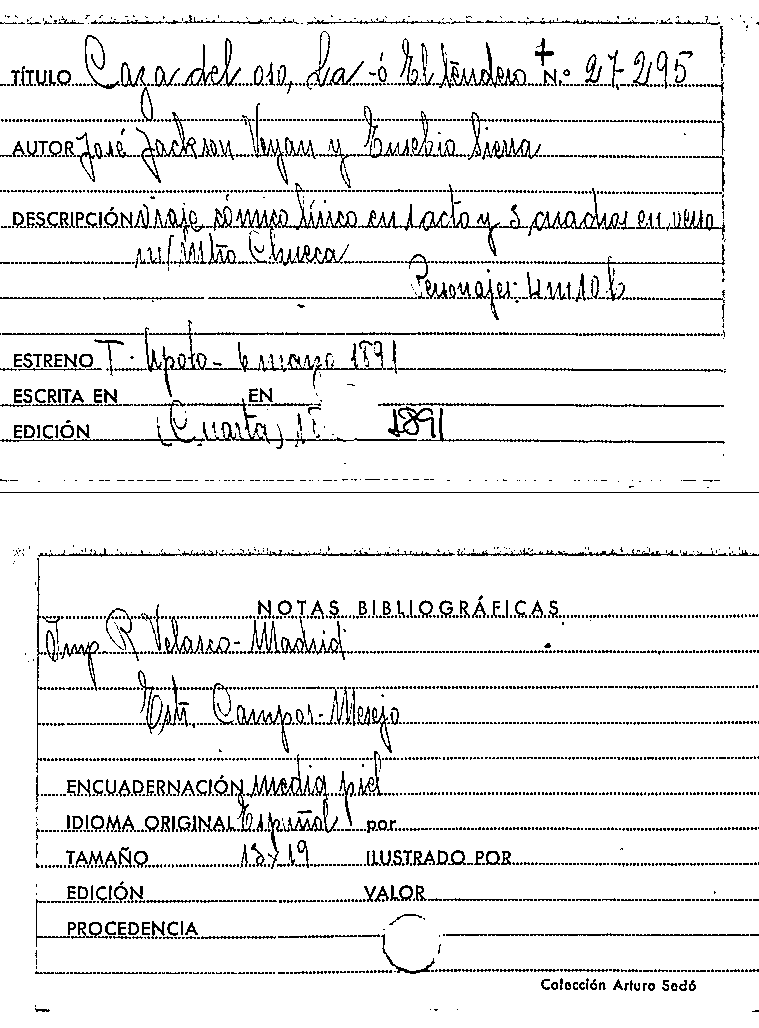 TÍTULO Caza del oso, La -ó El tendero N.º 27-295
AUTOR José Jackson Veyan y Eusebio Sierra
DESCRIPCIÓN viaje cómico lírico en 1 acto y 5 cuadros en verso
m/ Mtro Chueca
Personajes: 4m 10h
ESTRENO T. Apolo - 6 marzo 1891
ESCRITA EN EN
EDICIÓN (Cuarta) 1891
NOTAS BIBLIOGRÁFICAS
Imp R Velasco - Madrid
Estr. Campos - Mesejo
ENCUADERNACIÓN media piel
IDIOMA ORIGINAL Español por
TAMAÑO 13x19 ILUSTRADO POR
EDICIÓN VALOR
PROCEDENCIA
Colección Arturo Sedó